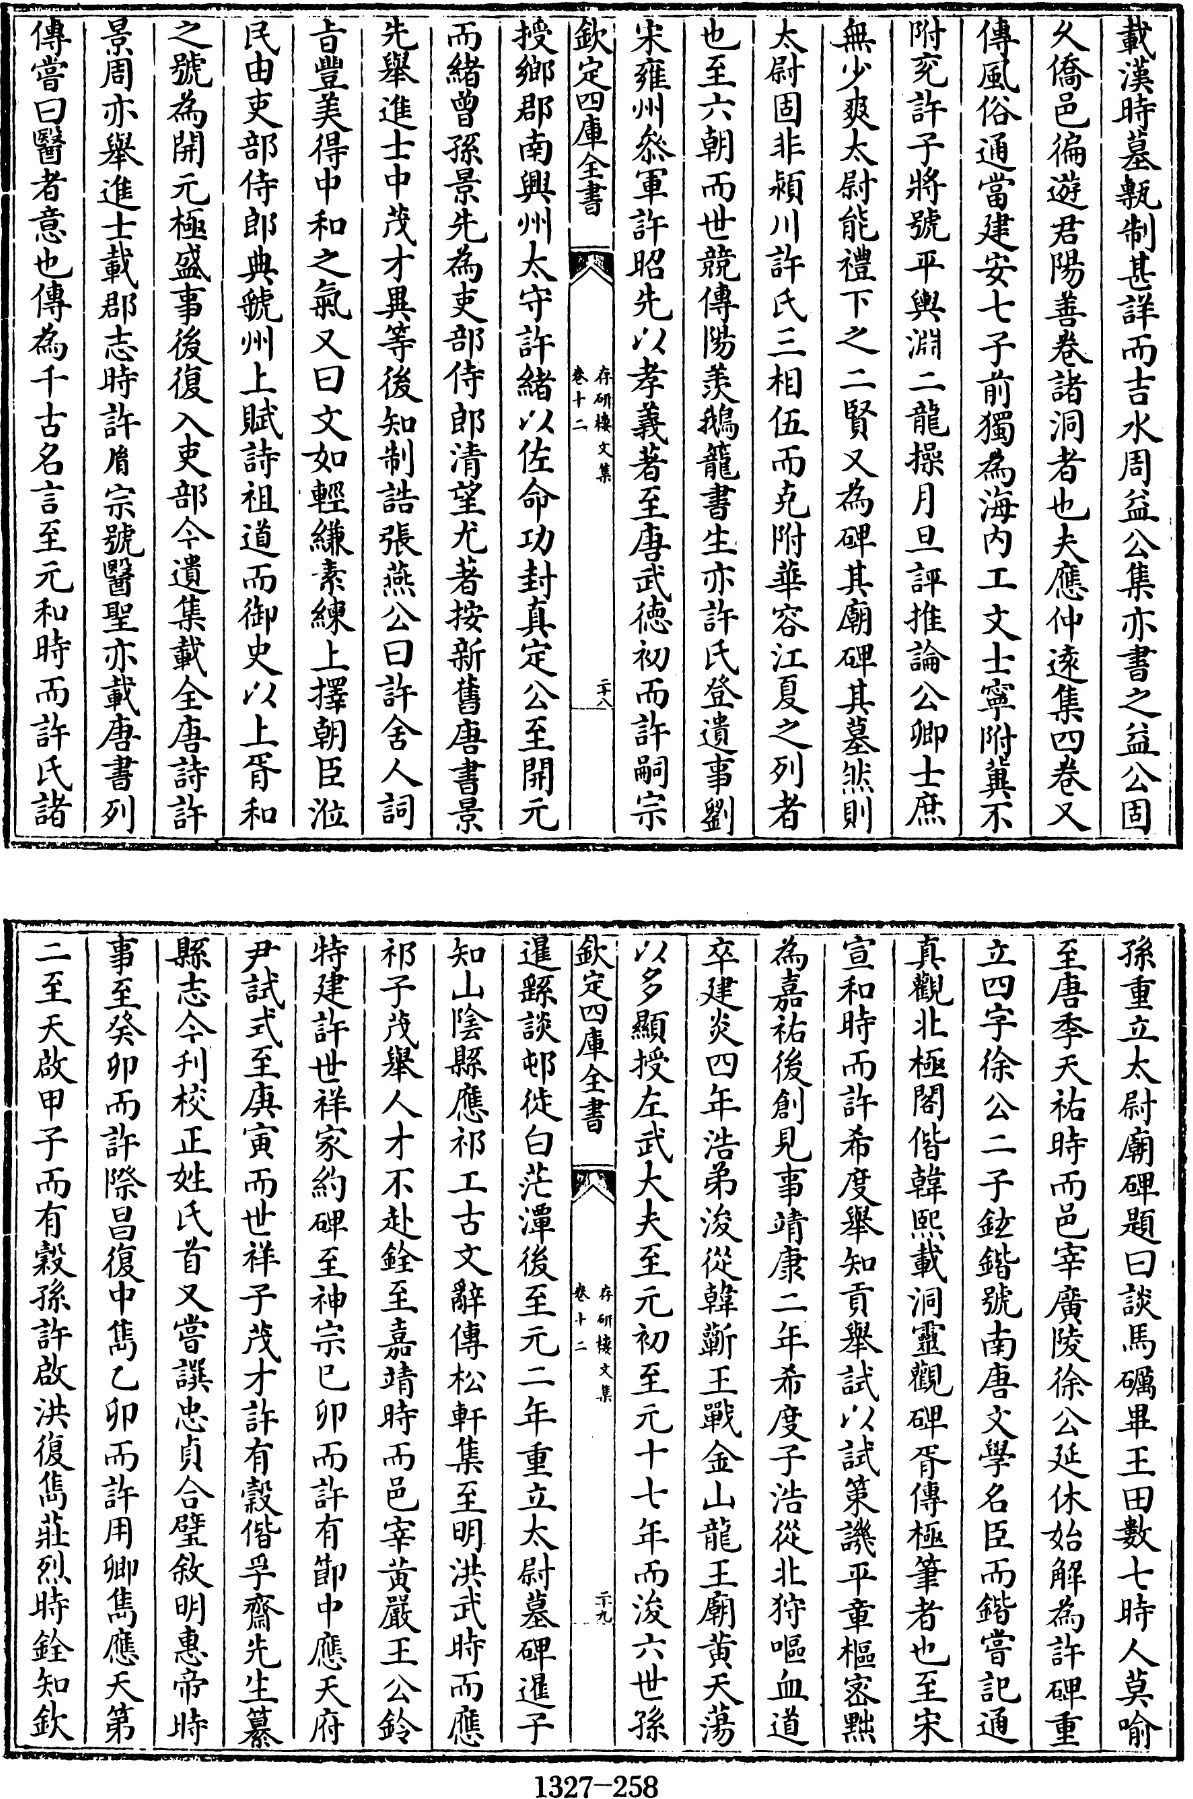 載漢時墓甎制甚詳而吉水周益公集亦書之益公固
久僑邑徧遊君陽善卷諸洞者也夫應仲遠集四卷又
傳風俗通當建安七子前獨為海内工文士寧附冀不
附兖許子將號平輿淵二龍操月旦評推論公卿士庶
無少爽太尉能禮下之二賢又為碑其廟碑其墓然則
太尉固非潁川許氏三相伍而克附華容江夏之列者
也至六朝而世競傳陽羨鵝籠書生亦許氏登遺事劉
宋雍州叅軍許昭先以孝義著至唐武德初而許嗣宗
欽定四庫全書
存研樓文集
卷十二
二十八
授鄉郡南興州太守許緒以佐命功封真定公至開元
而緒曾孫景先為吏部侍郎清望尤著按新舊唐書景
先舉進士中茂才異等後知制誥張燕公曰許舍人詞
旨豐美得中和之氣又曰文如輕縑素練上擇朝臣涖
民由吏部侍郎典虢州上賦詩祖道而御史以上胥和
之號為開元極盛事後復入吏部今遺集載全唐詩許
景周亦舉進士載郡志時許胤宗號醫聖亦載唐書列
傳嘗曰醫者意也傳為千古名言至元和時而許氏諸
孫重立太尉廟碑題曰談馬礪畢王田數七時人莫喻
至唐季天祐時而邑宰廣陵徐公延休始解為許碑重
立四字徐公二子鉉鍇號南唐文學名臣而鍇嘗記通
真觀北極閣偕韓熙載洞靈觀碑胥傳極筆者也至宋
宣和時而許希度舉知貢舉試以試策譏平章樞密黜
為嘉祐後創見事靖康二年希度子浩從北狩嘔血道
卒建炎四年浩弟浚從韓蘄王戰金山龍王廟黄天蕩
以多顯授左武大夫至元初至元十七年而浚六世孫
欽定四庫全書
存研樓文集
卷十二
二十九
暹繇談邨徙白茫潭後至元二年重立太尉墓碑暹子
知山陰縣應祁工古文辭傳松軒集至明洪武時而應
祁子茂舉人才不赴銓至嘉靖時而邑宰黄嚴王公鈴
特建許世祥家約碑至神宗已卯而許有節中應天府
尹試式至庚寅而世祥子茂才許有穀偕孚齋先生纂
縣志今刋校正姓氏首又嘗譔忠貞合璧敘明惠帝時
事至癸卯而許際昌復中雋乙卯而許用卿雋應天第
二至天啟甲子而有穀孫許啟洪復雋莊烈時銓知欽
1327-258